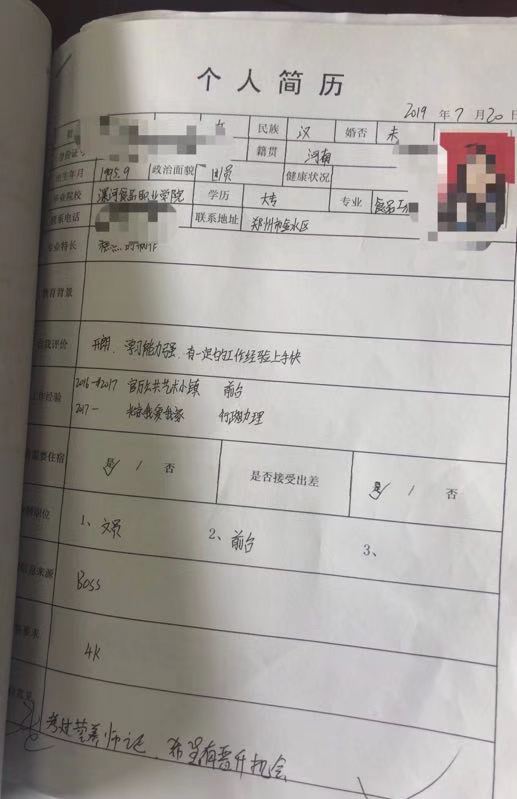 个人简历
2019 年 7 月 20 日
女 民族 汉 婚否 未
籍贯 河南
出生年月 1995.9 政治面貌 团员 健康状况
毕业院校 漯河食品职业学院 学历 大专 专业 食品
联系电话 联系地址 郑州市金水区
专业特长
教育背景
自我评价 开朗、学习能力强、有一定的工作经验上手快
工作经验 2016-2017 艺术小镇 前台
2017- 我爱我家 行政助理
需要住宿 是 / 否 是否接受出差 是 / 否
1、文员 2、前台 3、
信息来源 Boss
4K
考过营养师证、希望有晋升机会